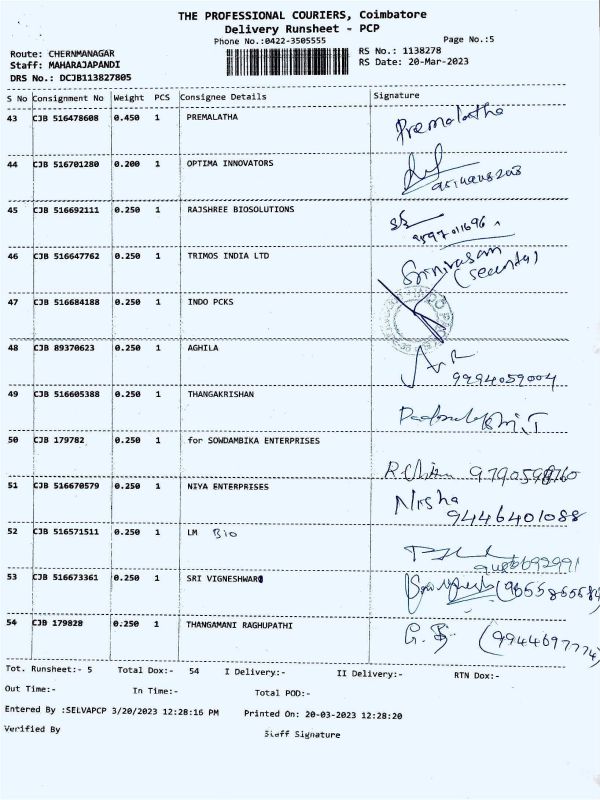 THE PROFESSIONAL COURIERS, Coimbatore
Delivery Runsheet - PCP
Phone No.:0422-3505555 Page No.:5
Route: CHERNMANAGAR RS No.: 1138278
Staff: MAHARAJAPANDI RS Date: 20-Mar-2023
DRS No.: DCJB113827805
S No Consignment No Weight PCS Consignee Details Signature
43 CJB 516478608 0.450 1 PREMALATHA Premalatha
44 CJB 516701280 0.200 1 OPTIMA INNOVATORS
45 CJB 516692111 0.250 1 RAJSHREE BIOSOLUTIONS
9597011696
46 CJB 516647762 0.250 1 TRIMOS INDIA LTD Srinivasan
47 CJB 516684188 0.250 1 INDO PCKS
48 CJB 89370623 0.250 1 AGHILA
9994059004
49 CJB 516605388 0.250 1 THANGAKRISHAN
50 CJB 179782 0.250 1 for SOWDAMBIKA ENTERPRISES
51 CJB 516670579 0.250 1 NIYA ENTERPRISES Nisha
9446401088
52 CJB 516571511 0.250 1 LM Bio
53 CJB 516673361 0.250 1 SRI VIGNESHWAR
54 CJB 179828 0.250 1 THANGAMANI RAGHUPATHI (9944697774)
Tot. Runsheet:- 5 Total Dox:- 54 I Delivery:- II Delivery:- RTN Dox:-
Out Time:- In Time:- Total POD:-
Entered By :SELVAPCP 3/20/2023 12:28:16 PM Printed On: 20-03-2023 12:28:20
Verified By Staff Signature